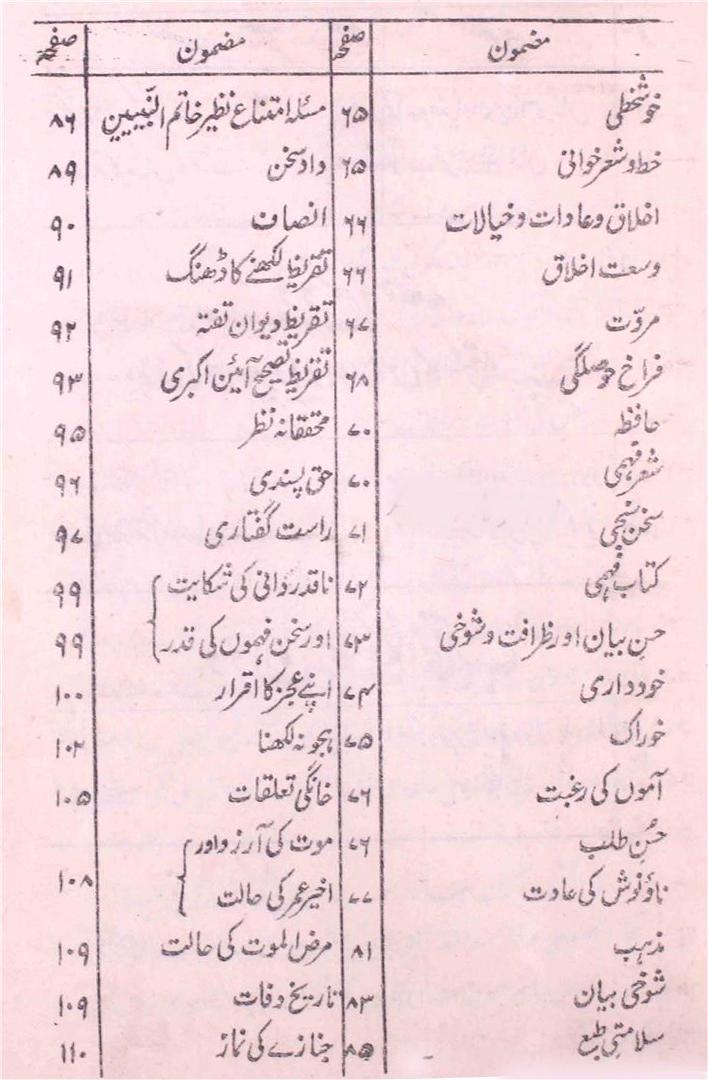 مضمون صفحہ مضمون صفحہ
خوشخطی ۶۵ مسئلہ امتناع نظیر خاتم النّبیین ۸۶
خط و شعر خوانی ۶۵ داد سخن ۸۹
اخلاق و عادات و خیالات ۶۶ انصاف ۹۰
وسعت اخلاق ۶۶ تقریظ لکھنے کا ڈھنگ ۹۱
مروّت ۶۷ تقریظ دیوان تفتہ ۹۲
فراخ حوصلگی ۶۸ تقریظ تصحیح آئین اکبری ۹۳
حافظہ ۷۰ محققانہ نظر ۹۵
شعر فہمی ۷۰ حق پسندی ۹۶
سخن سنجی ۷۱ راست گفتاری ۹۷
کتاب فہمی ۷۲ ناقدردانی کی شکایت ۹۹
حسن بیان اور ظرافت و شوخی ۷۳ اور سخن فہموں کی قدر ۹۹
خودداری ۷۴ اپنے عجز کا اقرار ۱۰۰
خوراک ۷۵ ہجو نہ لکھنا ۱۰۲
آموں کی رغبت ۷۶ خانگی تعلقات ۱۰۵
حُسنِ طلب ۷۶ موت کی آرزو اور
ناؤنوش کی عادت ۷۷ اخیر عمر کی حالت ۱۰۸
مذہب ۸۱ مرض الموت کی حالت ۱۰۹
شوخی بیان ۸۳ تاریخ وفات ۱۰۹
سلامتیِ طبع ۸۵ جنازے کی نماز ۱۱۰